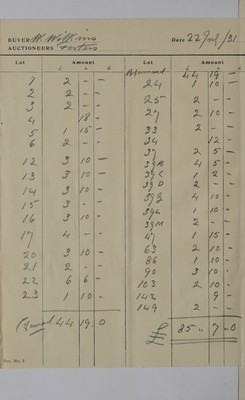 BUYER W. Wilkins Date 22 July /31
AUCTIONEERS Fosters
Lot Amount Lot Amount
£ s. d. £ s. d.
1 2 - -
2 2 - -
3 2 - -
4 18 -
5 1 15 -
6 2 - -
12 3 10 -
13 3 10 -
14 3 10 -
15 3 - -
16 3 10 -
17 4 - -
20 3 10 -
21 2 - -
22 6 6 -
23 1 10 -
Forward 44 19 0
Forward 44 19 -
24 1 10 -
25 2 - -
27 2 10 -
33 2 - -
34 12 -
37 2 5 -
39B 4 5 -
39C 1 2 -
39D 2 - -
39G 4 10 -
39L 1 10 -
39M 2 - -
47 1 15 -
63 2 10 -
86 1 10 -
90 3 10 -
103 2 10 -
142 9 -
149 2 - -
£ 85 " 7 " 0